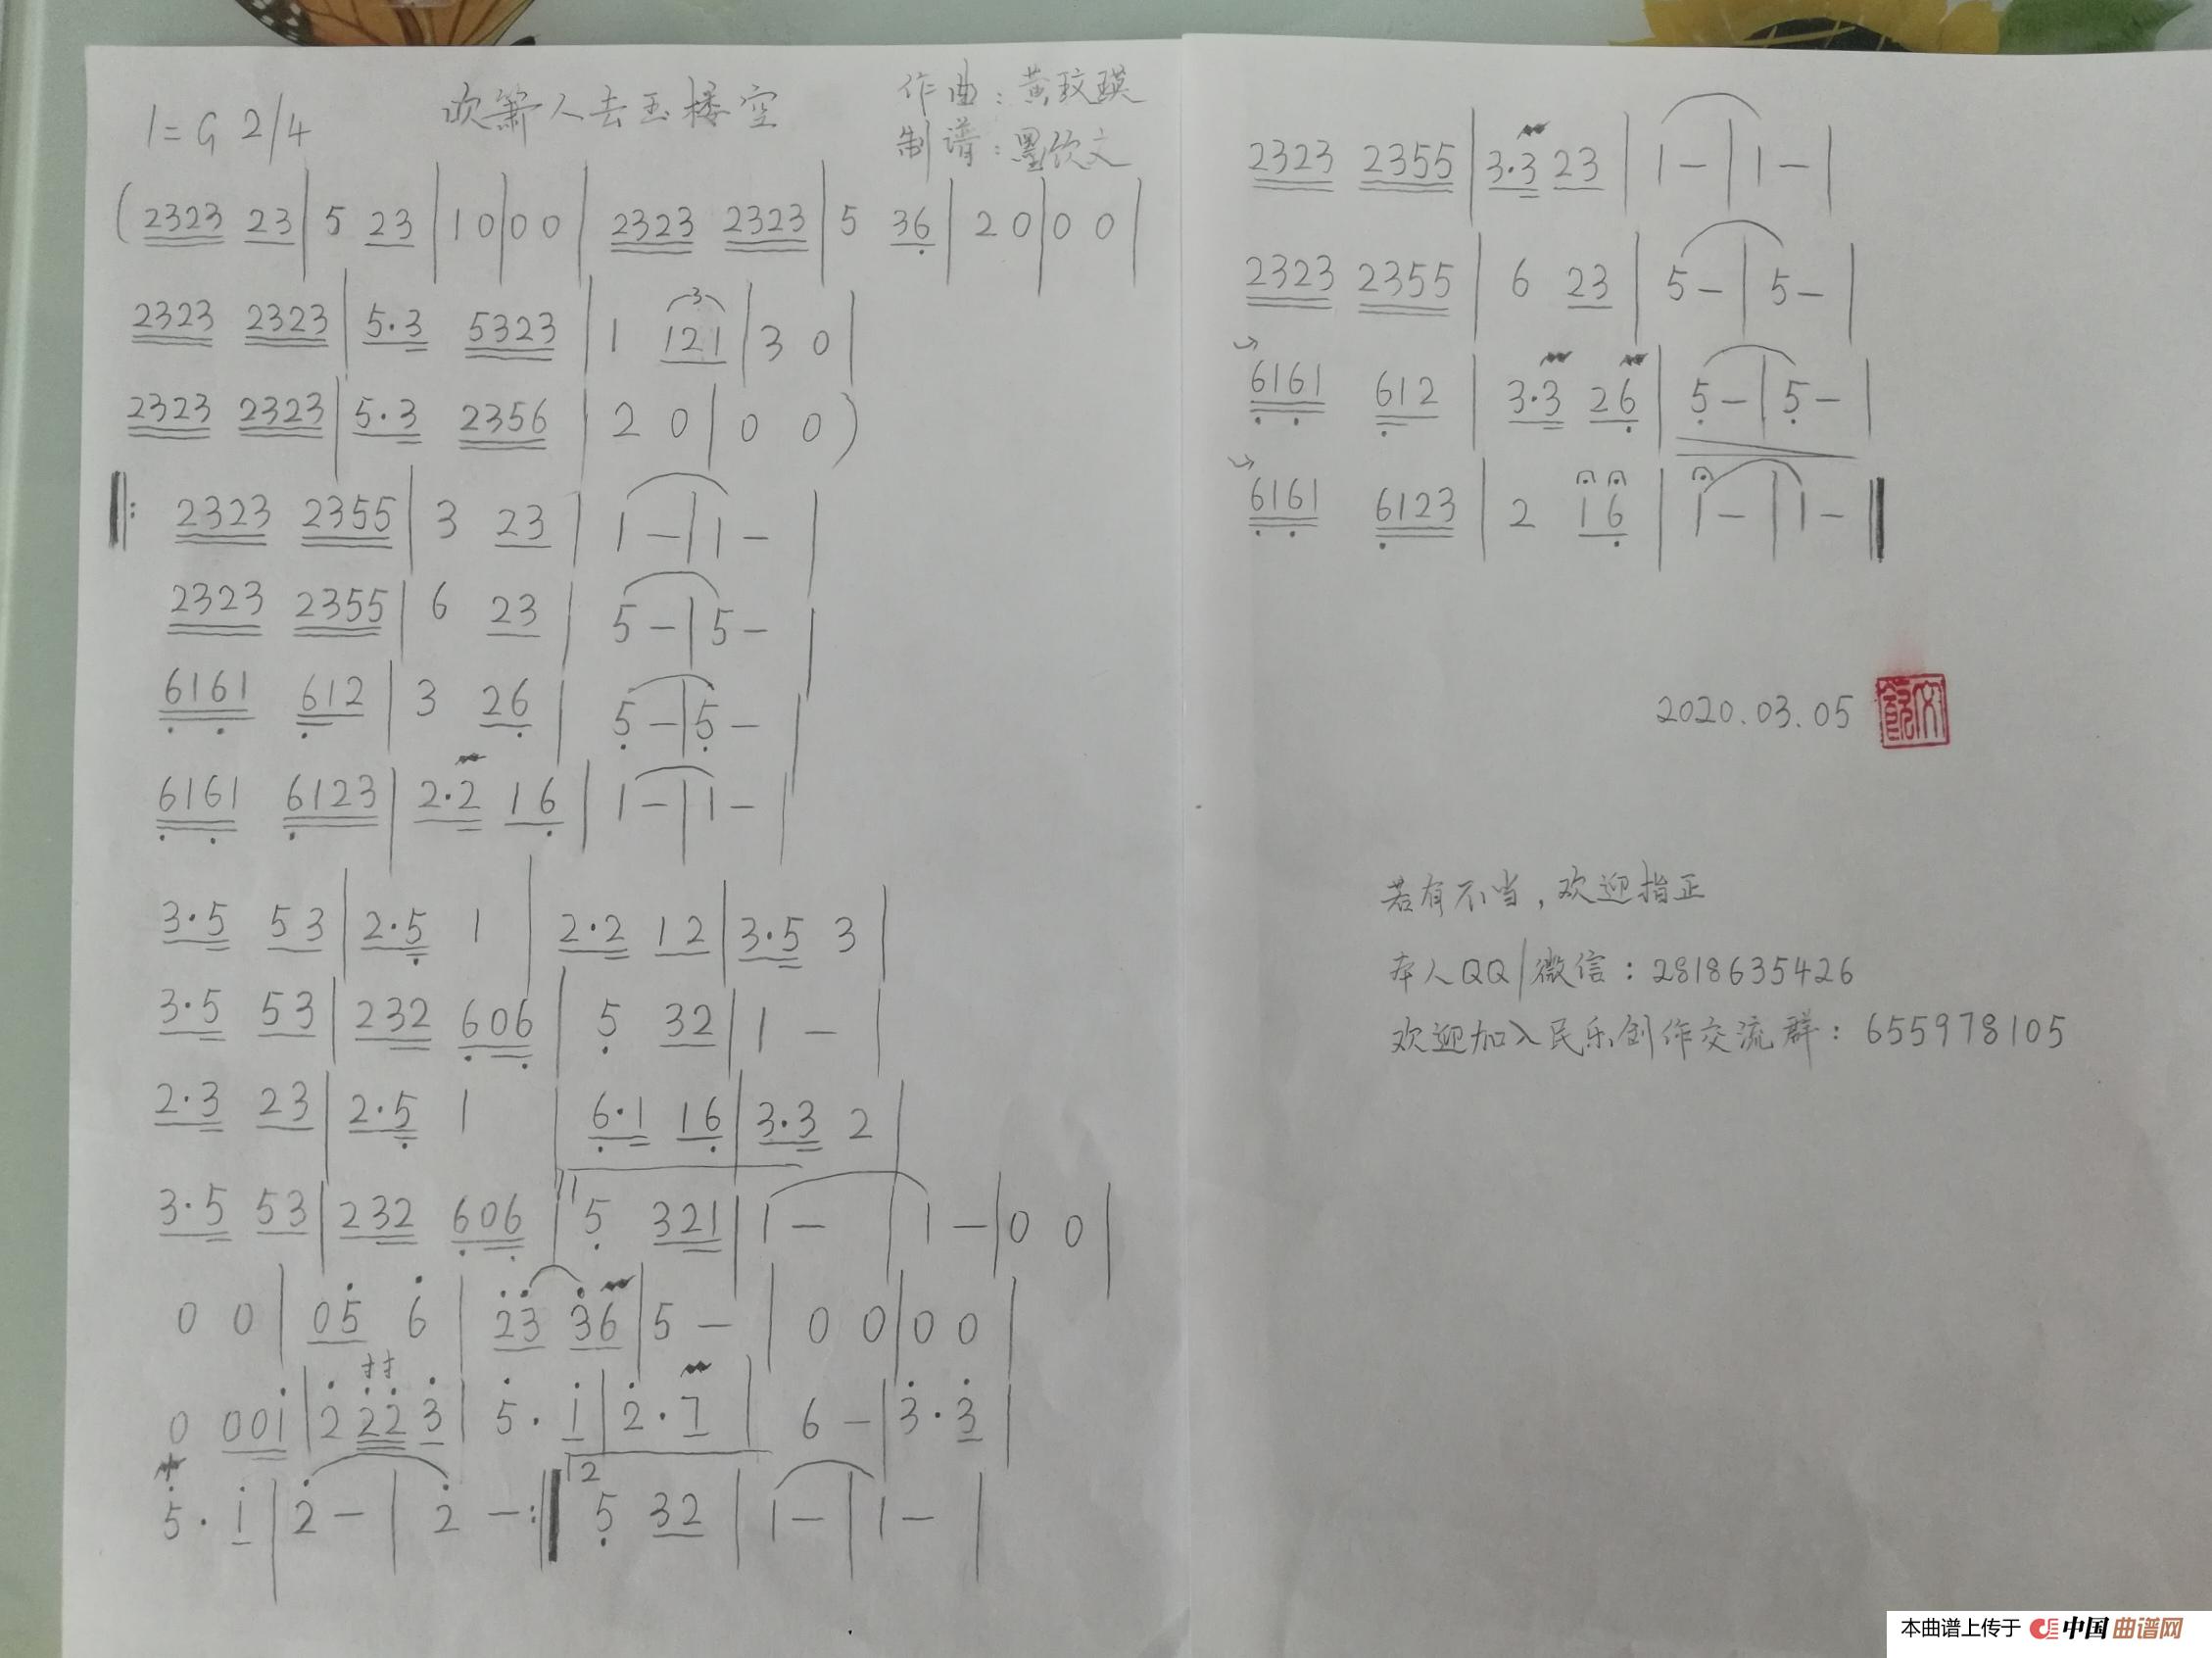 1=G 2/4
吹箫人去玉楼空
作曲：黄玟瑛
制谱：墨饮文
(2323 23|5 23|1 0|0 0|2323 2323|5 36|2 0|0 0|
2323 2323|5.3 5323|1 121|3 0|
3
2323 2323|5.3 2356|2 0|0 0)
‖: 2323 2355|3 23|1 -|1 -|
2323 2355|6 23|5 -|5 -|
6161 612|3 26|5 -|5 -|
6161 6123|2.2 16|1 -|1 -|
3.5 53|2.5 1|2.2 12|3.5 3|
3.5 53|232 606|5 32|1 -|
2.3 23|2.5 1|6.1 16|3.3 2|
3.5 53|232 606|5 321|1 -|1 -|0 0|
1
0 0|05 6|23 36|5 -|0 0|0 0|
0 001|2 22 3|5. 1|2. 7|6 -|3. 3|
5. 1|2 -|2 -:‖5 32|1 -|1 -|
2
2323 2355|3.3 23|1 -|1 -|
2323 2355|6 23|5 -|5 -|
6161 612|3.3 26|5 -|5 -|
6161 6123|2 16|1 -|1 -‖
2020.03.05
若有不当，欢迎指正
本人QQ/微信：2818635426
欢迎加入民乐创作交流群：655978105
本曲谱上传于 中国曲谱网